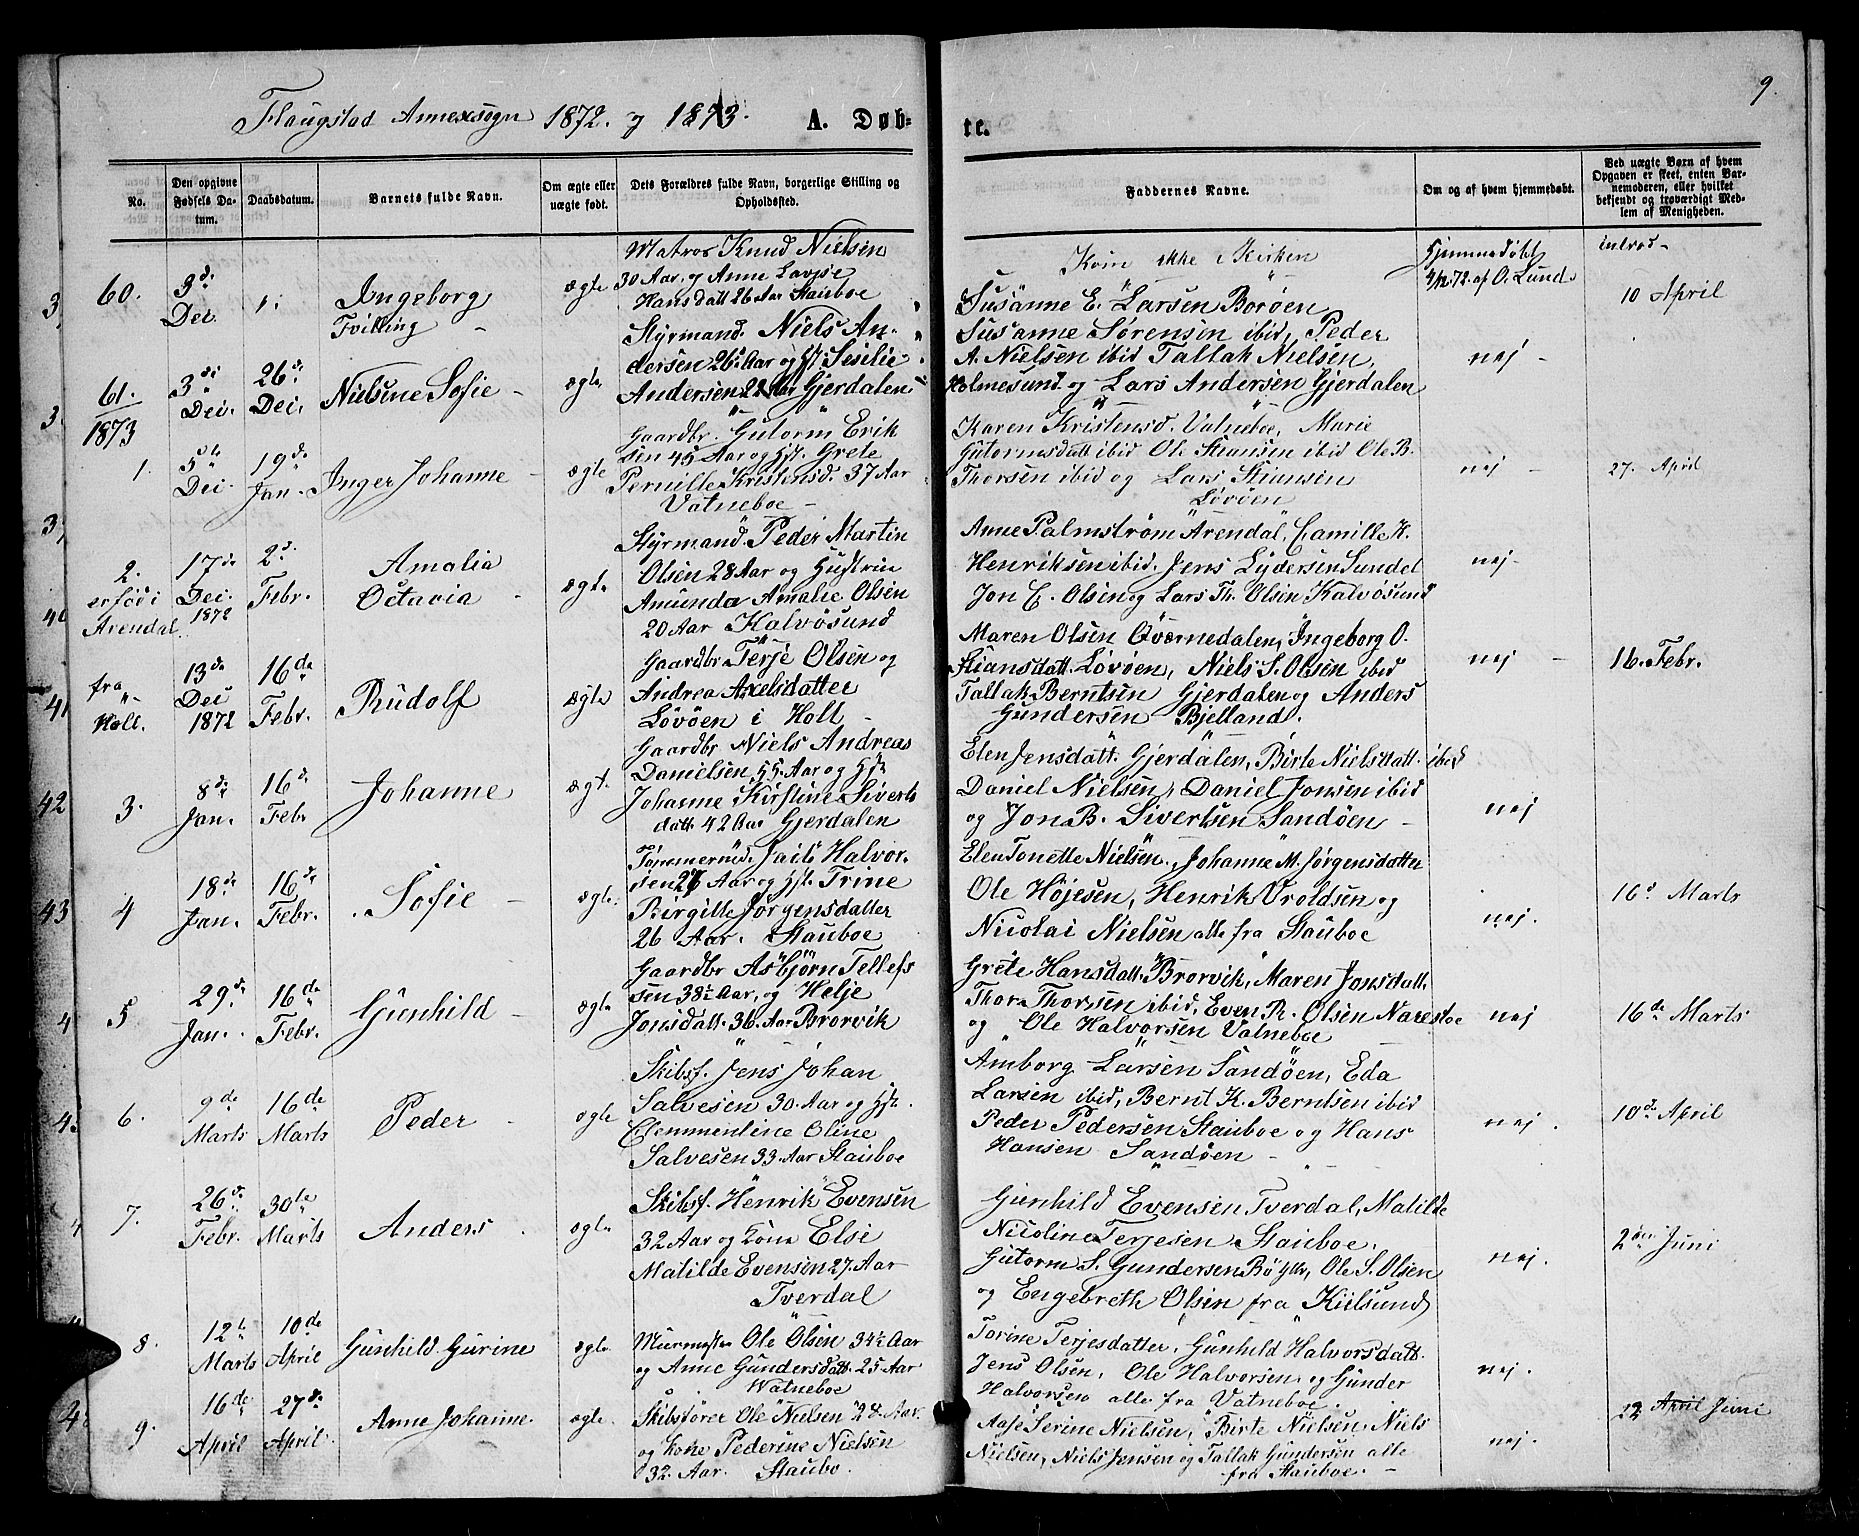 9.
Flaugstad Annexsogn 1872. og 1873. A. Døb- te.
No. Den opgivne Fødsels Datum. Daabsdatum. Barnets fulde Navn. Om ægte eller uægte født. Dets Forældres fulde Navn, borgerlige Stilling og Opholdssted. Faddernes Navne. Om og af hvem hjemmedøbt. Ved uægte Børn af hvem Opgaven er skeet, enten Barnemoderen, eller hvilket bekjendt og troværdigt Medlem af Menigheden.
60. 3de Dei. Ingeborg Tvilling ægte
Matros Knud Nielsen
30 Aar og Anne Lovise
Hansdatt 26 Aar Stauboe
Kom ikke i Kirken
Hjemmedøbt
4/12.72. af O. Lund
introd-
10 April
61. 3de Dei. 26de Dei. Nielsine Sofie ægte
Styrmand Niels An-
dersen 26 Aar og Hst. Sesilie
Andersen 22 Aar Gjerdalen
Susanne E. Larsen Borøen
Susanne Sørensen ibid, Peder
A. Nielsen ibid Tallak Nielsen,
Holmesund og Lars Andersen Gjerdalen
nej
1873
1. 5te Dei. 19de Jan. Inger Johanne ægte
Gaardbr. Gutorm Erik
sen 45 Aar og Hst. Grete
Pernille Kristensd. 37 Aar
Vatneboe
Karen Kristensd. Vatneboe, Marie
Gutormsdatt ibid Ole Stiansen ibid Ole B.
Thorsen ibid og Lars Stiansen
Løvøen
nej
27. April
2. er født i Arendal. 17de Dei. 1872 2d. Febr. Amalia Octavia ægte
Styrmand Peder Martin
Olsen 28 Aar og Hustrue
Amunda Amalie Olsen
20 Aar Kalvøsund
Anne Palmstrøm Arendal, Camille K.
Henriksen ibid. Jens Lydersen Sundet
Jon C. Olsen og Lars Th. Olsen Kalvøsund
nej
fra Holt. 13de Dei 1872 16de Febr. Rudolf ægte
Gaardbr Terje Olsen og
Andrea Axelsdatter
Løvøen i Holt
Maren Olsen Qværnedalen, Ingeborg O.
Stiansdatt. Løvøen, Niels S. Olsen ibid
Tallak Berntsen Gjerdalen og Anders
Gundersen Bjelland.
nej
16. Febr.
3. 8de Jan. 16de Febr Johanne ægt.
Gaardbr Niels Andreas
Danielsen 55. Aar og Hst
Johanne Kirstine Siverts
datt 42 Aar Gjerdalen
Elen Jensdatt. Gjerdalen, Birte Nielsdatt. ibid
Daniel Nielsen, Daniel Jonsen ibid
og Jon B. Sivertsen Sandøen
nej
4 18de Jan. 16de Febr. Sofie ægte.
Tømmermd. Halvor-
sen 27 Aar og Hst. Trine
Birgitte Jørgensdatter
26 Aar. Stauboe
Elen Tonette Nielsen, Johanne M. Jørgensdatter
Ole Højesen, Henrik Vroldsen og
Nicolai Nielsen alle fra Stauboe
nej.
16d Marts
5 29de Jan. 16de Febr. Gunhild ægte
Gaardbr Asbjørn Tellefs
sen 38½ Aar, og Helje
Jonsdatt. 36 Aar Brorvik
Grete Hansdatt. Brorvik, Maren Jonsdatt.
Thor Thorsen ibid, Even R. Olsen Narestoe
og Ole Halvorsen Vatneboe
nej
16de Marts
6. 9de Marts 16de Marts Peder ægte
Skibsf. Jens Johan
Salvesen 30 Aar og Hst.
Clemmentine Oline
Salvesen 33. Aar Stauboe
Amborg Larsen Sandøen, Eda
Larsen ibid, Bernt K. Berntsen ibid
Peder Pedersen Stauboe og Hans
Hansen Sandøen
nej.
10de April
7. 26de Febr. 30te Marts Anders ægte
Skibsf. Henrik Evensen
32 Aar og Kone Elsi
Matilde Evensen 27. Aar
Tverdal
Gunhild Evensen Tverdal, Matilde
Nicoline Terjesen Stauboe.
Gutorm S. Gundersen, Ole S. Olsen
og Engebreth Olsen fra Kielsund
nej.
2den Juni
8. 12te Marts 10de April Gunhild Gurine ægte
Murmester Ole Olsen 34½ Aar
og Anne Gundersdatt. 25 Aar
Watneboe
Torine Terjesdatter, Gunhild Halvorsdatt.
Jens Olsen, Ole Halvorsen og Gunder
Halvorsen alle fra Vatneboe.
nej.
9. 16de April 27de April Anne Johanne. ægte.
Skibsfører Ole Nielsen 24. Aar.
og Kone Pederine Nielsen
32. Aar. Staubo.
Aase Serine Nielsen, Birte Nielsen, Niels
Nielsen, Niels Jensen og Tallak Gundersen alle
fra Stauboe.
nej.
22 April Juni